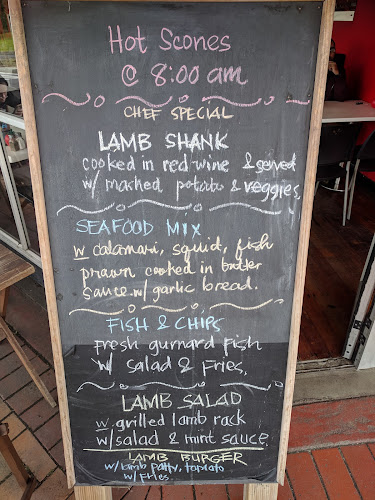 Hot Scones
@ 8:00 am
CHEF SPECIAL
LAMB SHANK
cooked in red wine & served
w/ mashed potato & veggies,
SEAFOOD MIX
w calamari, squid, fish
prawn cooked in butter
sauce w/ garlic bread.
FISH & CHIPS
fresh gurnard fish
w/ salad & fries,
LAMB SALAD
w grilled lamb rack
w/ salad & mint sauce
LAMB BURGER
w/ lamb patty, tomato
w/ Fries.